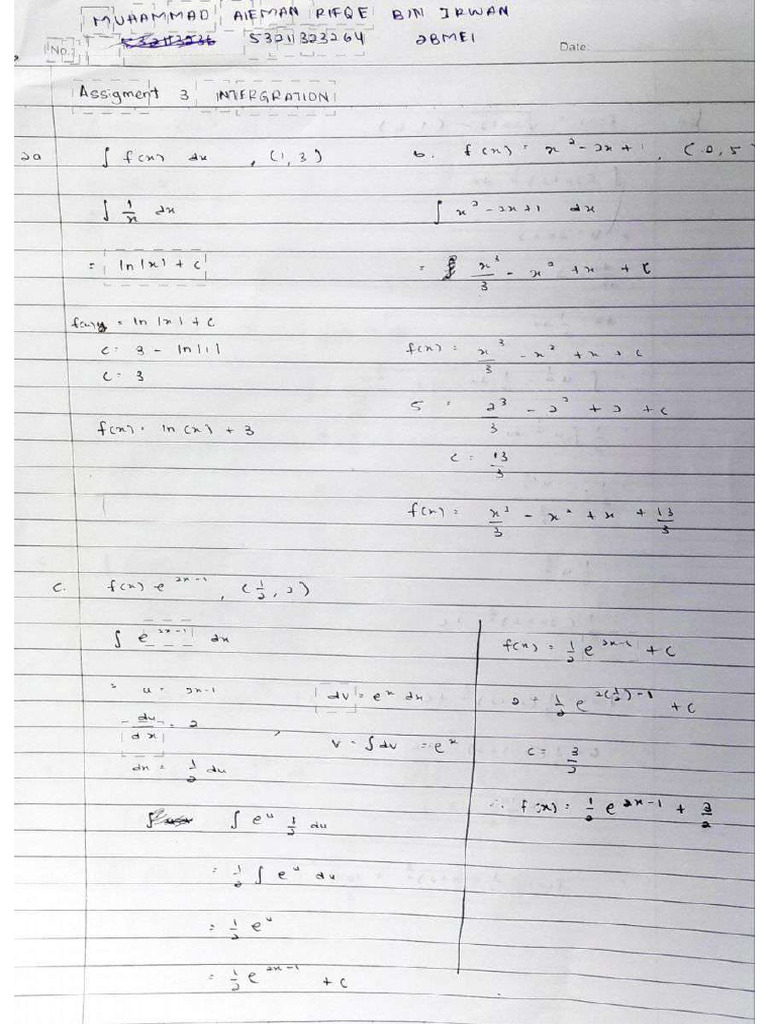 MUHAMMAD AIEMAN RIFQE BIN IRWAN
No. 53211323264 2BMEI Date:
Assigment 3 INTERGRATION
2a ∫ f(x) dx , (1, 3)
∫ 1/x dx
= ln|x| + c
= ln|x| + c
c = 3 - ln|1|
c = 3
f(x) = ln(x) + 3
b. f(x) = x² - 2x + 1, (2, 5)
∫ x² - 2x + 1 dx
= x³/3 - x² + x + c
f(x) = x³/3 - x² + x + c
5 = 2³/3 - 2² + 2 + c
c = 13/3
f(x) = x³/3 - x² + x + 13/3
c. f(x) = e^(2x-1), (1/2, 2)
∫ e^(2x-1) dx
= u = 2x-1
du/dx = 2
dx = 1/2 du
, dv = e^x dx
v = ∫dv = e^x
∫ e^u 1/2 du
= 1/2 ∫ e^u du
= 1/2 e^u
= 1/2 e^(2x-1) + c
f(x) = 1/2 e^(2x-1) + c
2 = 1/2 e^(2(1/2)-1) + c
c = 3/2
∴ f(x) = 1/2 e^(2x-1) + 3/2